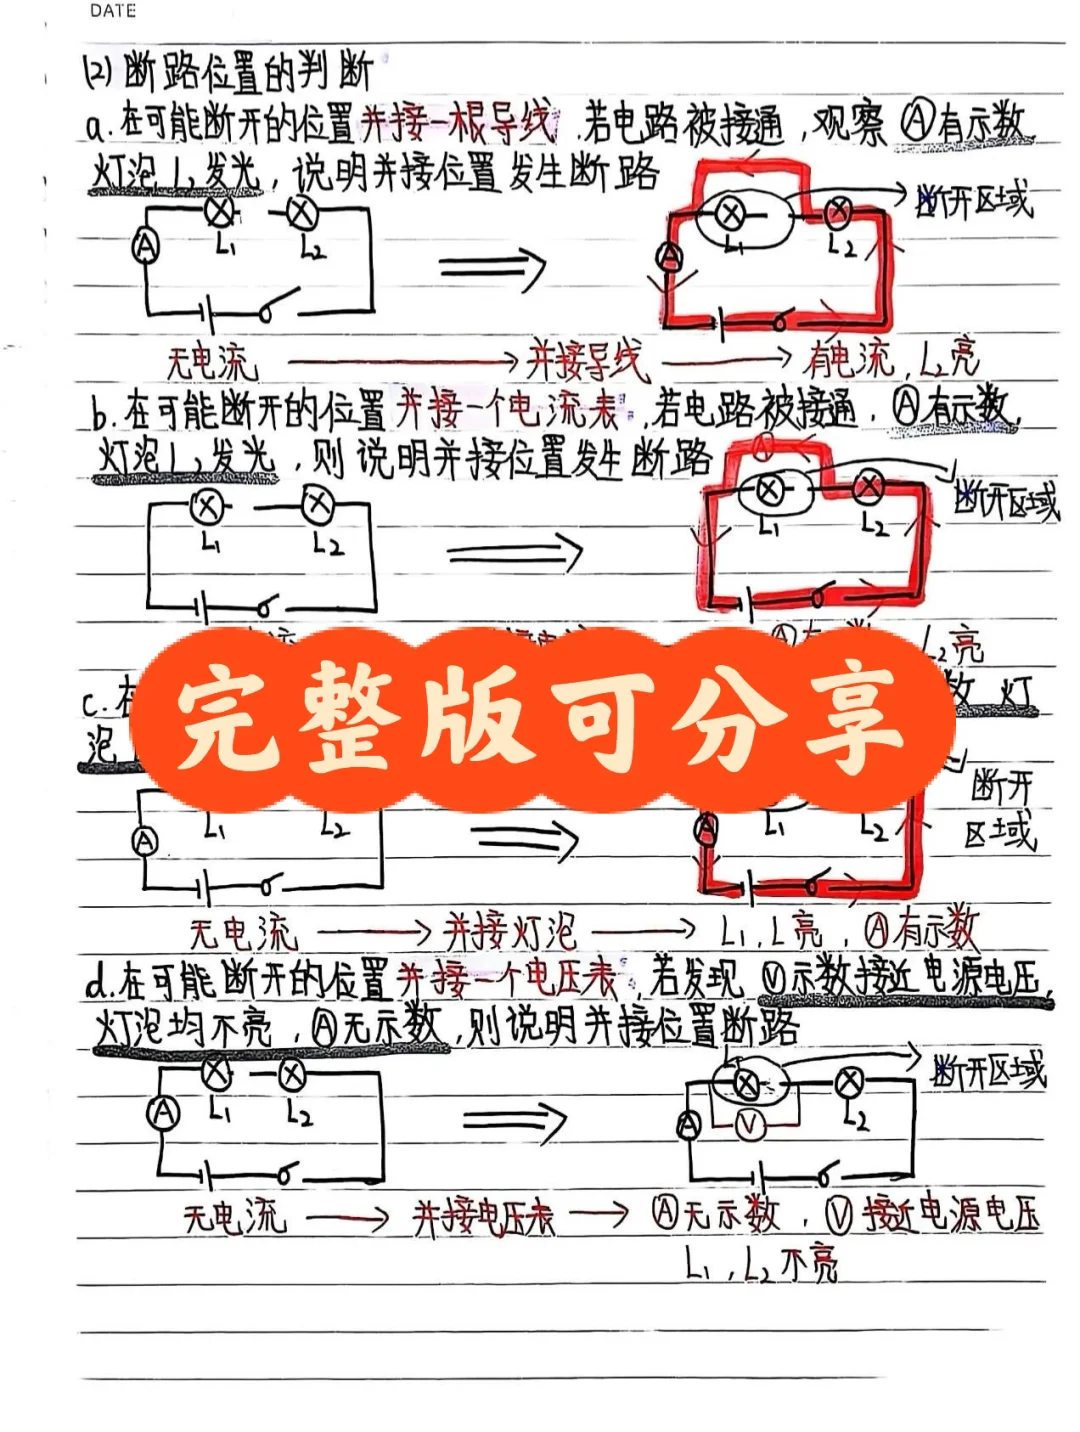 DATE
(2) 断路位置的判断
a.在可能断开的位置并接一根导线,若电路被接通,观察Ⓐ有示数
灯泡L₂发光,说明并接位置发生断路
L₁ L₂ A
断开区域
L₁ L₂ A
无电流 → 并接导线 → 有电流,L₂亮
b.在可能断开的位置并接一个电流表,若电路被接通,Ⓐ有示数,
灯泡L₂发光,则说明并接位置发生断路
L₁ L₂
A L₁ L₂
断开区域
L₂亮
完整版可分享
c.在
数 灯
泡
断开
区域
A L₁ L₂
A L₁ L₂
无电流 → 并接灯泡 → L₁,L亮,Ⓐ有示数
d.在可能断开的位置并接一个电压表,若发现Ⓥ示数接近电源电压,
灯泡均不亮,Ⓐ无示数,则说明并接位置断路
断开区域
A L₁ L₂
A V L₂
无电流 → 并接电压表 → Ⓐ无示数,Ⓥ接近电源电压
L₁,L₂不亮